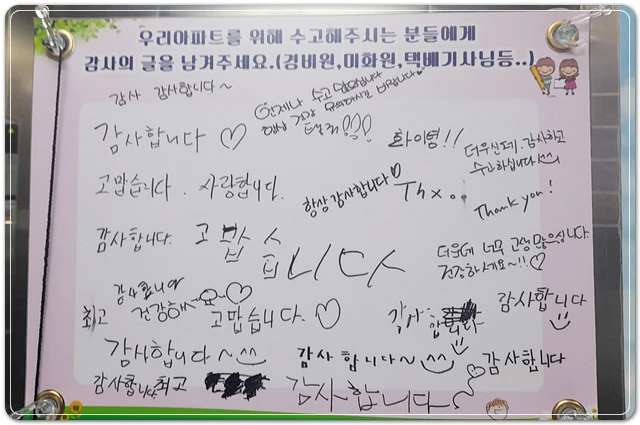 우리아파트를 위해 수고해주시는 분들에게
감사의 글을 남겨주세요.(경비원,미화원,택배기사님등..)
감사 감사합니다~
언제나 수고 많으십니다
항상 건강 유의하시길 바랍니다♡
감사합니다 ♡
화이팅!!
더우신데, 감사하고
수고하십니다^^
고맙습니다. 사랑합니다.
항상 감사합니다♡
Thx..
Thank you!
감사합니다.
고맙습
니다
더운데 너무 고생 많으십니다.
건강하세요~!!♡
감사합니다
건강하세~요~♡
최고
고맙습니다.♡
감사
합니다
감사합니다
감사합니다~^^
감사합니다~^^
감사합니다
감사합니다.최고
감사합니다